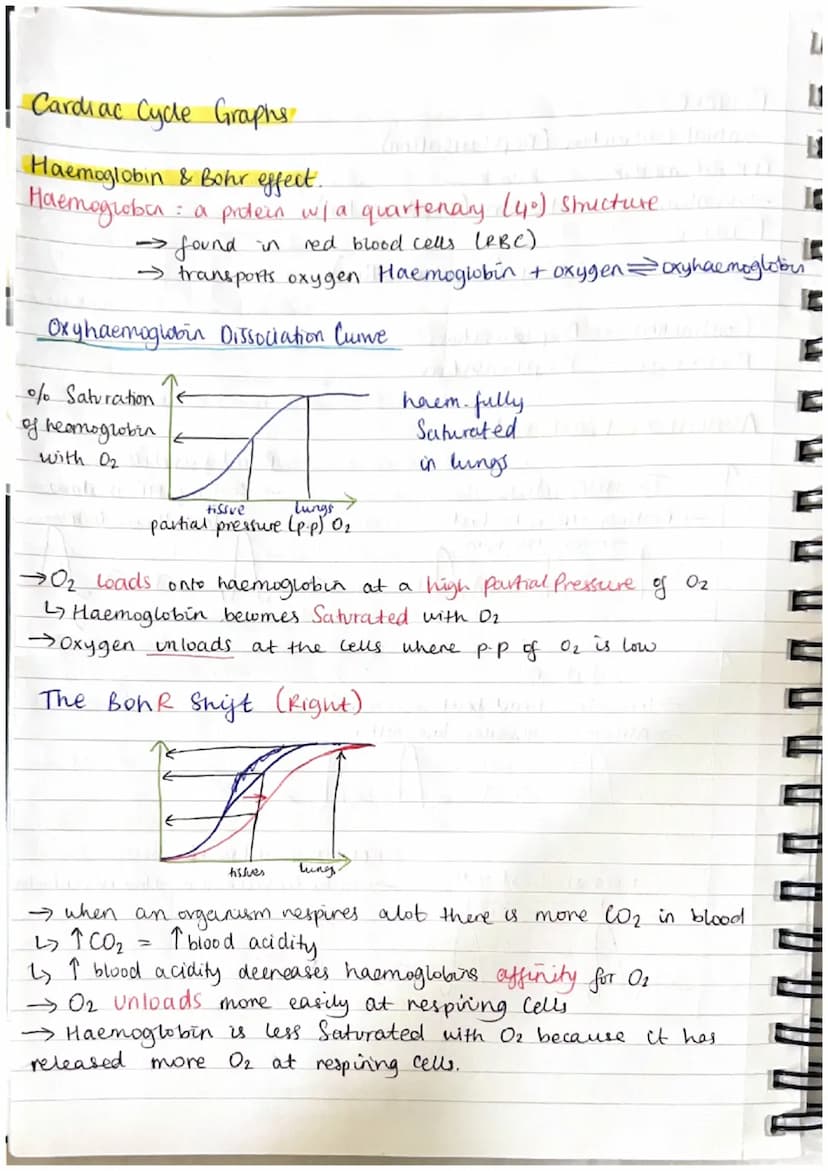 Cardiac Cycle Graphs
Haemoglobin & Bohr effect.
Haemoglobin : a protein w/ a quartenary (4°) structure
→ found in red blood cells (RBC)
→ transports oxygen Haemoglobin + oxygen ⇌ oxyhaemoglobin
Oxyhaemoglobin Dissociation Curve
% Saturation
of heamoglobin
with O2
haem. fully
Saturated
in lungs
tissue lungs
partial pressure (p.p) O2
→ O2 loads onto haemoglobin at a high partial Pressure of O2
↳ Haemoglobin becomes Saturated with O2
→ Oxygen unloads at the cells where p.p of O2 is low
The BohR Shift (Right)
tissues lungs
→ when an organism respires alot there is more CO2 in blood
↳ ↑ CO2 = ↑ blood acidity
↳ ↑ blood acidity decreases haemoglobins affinity for O2
→ O2 unloads more easily at respiring cells
→ Haemoglobin is less Saturated with O2 because it has
released more O2 at respiring cells.